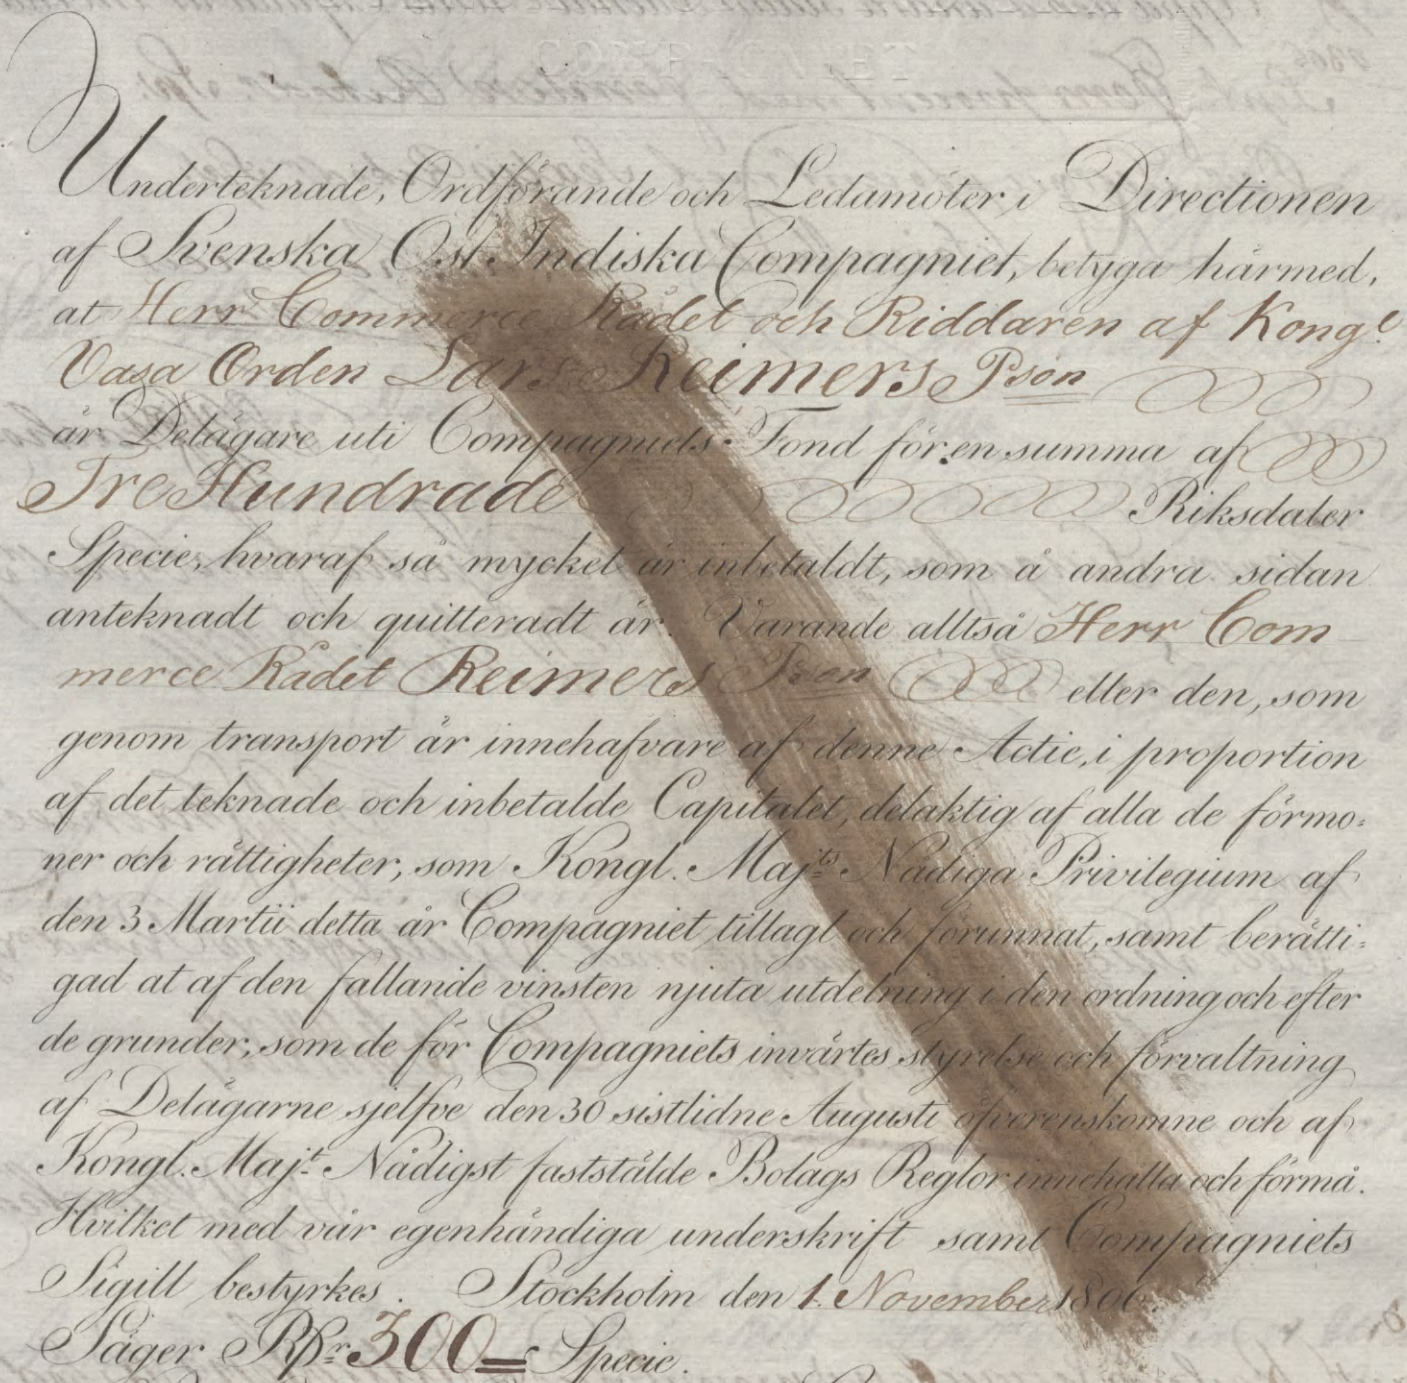 Underteknade, Ordförande och Ledamöter i Directionen
af Svenska Ost Indiska Compagniet, betyga härmed,
at Herr Commerce Rådet och Riddaren af Kongl.
Vasa Orden Lars Reimers Pson
är Delägare uti Compagniets Fond för en summa af
Tre Hundrade Riksdaler
Specie, hvaraf så mycket är inbetaldt, som å andra sidan
anteknadt och quitteradt är. Varande alltså Herr Com
merce Rådet Reimers Pson eller den, som
genom transport är innehafvare af denne Actie, i proportion
af det teknade och inbetalde Capitalet, delaktig af alla de förmo:
ner och rättigheter, som Kongl. Majts Nådiga Privilegium af
den 3 Martii detta år Compagniet tillagt och förunnat, samt berätti:
gad at af den fallande vinsten njuta utdelning i den ordning och efter
de grunder, som de för Compagniets invärtes styrelse och förvaltning
af Delägarne sjelfve den 30 sistlidne Augusti öfverenskomne och af
Kongl. Majt Nådigst faststälde Bolags Reglor innehålla och förmå.
Hvilket med vår egenhändiga underskrift samt Compagniets
Sigill bestyrkes. Stockholm den 1. November 1806.
Säger Rdr 300 Specie.